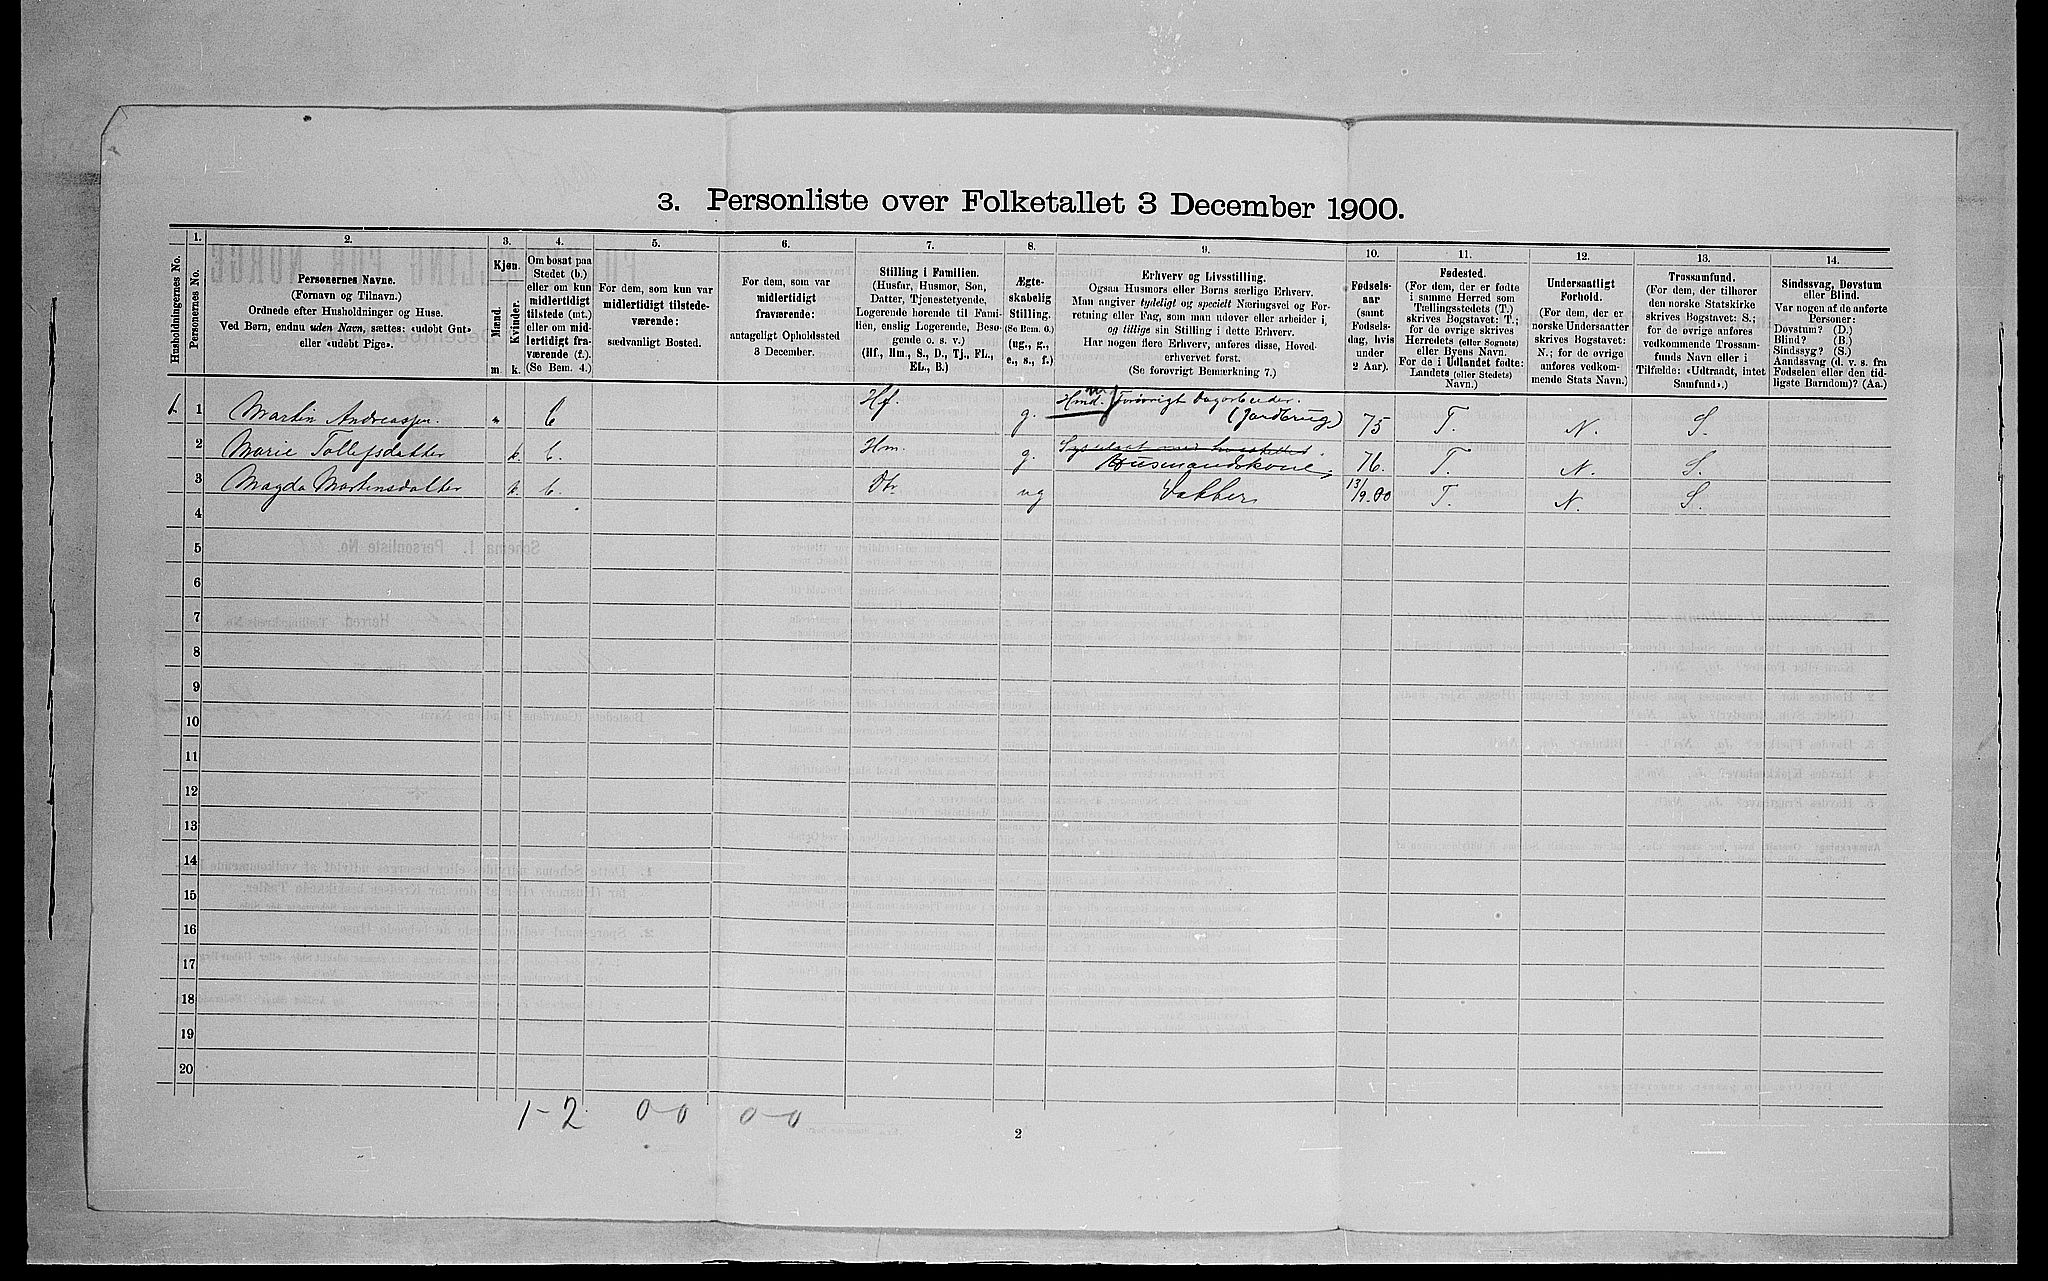 3. Personliste over Folketallet 3 December 1900.
1. 2. 3. 4. 5. 6. 7. 8. 9. 10. 11. 12. 13. 14.
Husholdningernes No.
Personernes No.
Personernes Navne.
(Fornavn og Tilnavn.)
Ordnede efter Husholdninger og Huse.
Ved Børn, endnu uden Navn, sættes: «udøbt Gut»
eller «udøbt Pige».
Kjøn.
Mænd.
Kvinder.
m. k.
Om bosat paa
Stedet (b.)
eller om kun
midlertidigt
tilstede (mt.)
eller om mid-
lertidigt fra-
værende (f.).
(Se Bem. 4.)
For dem, som kun var
midlertidigt tilstede-
værende:
sædvanligt Bosted.
For dem, som var
midlertidigt
fraværende:
antageligt Opholdssted
3 December.
Stilling i Familien.
(Husfar, Husmor, Søn,
Datter, Tjenestetyende,
Logerende hørende til Fami-
lien, enslig Logerende, Besø-
gende o. s. v.)
(Hf., Hm., S., D., Tj., FL.,
EL., B.)
Ægte-
skabelig
Stilling.
(Se Bem. 6.)
(ug., g.,
e., s., f.)
Erhverv og Livsstilling.
Ogsaa Husmors eller Børns særlige Erhverv.
Man angiver tydeligt og specielt Næringsvei og For-
retning eller Fag, som man udøver eller arbeider i,
og tillige sin Stilling i dette Erhverv.
Har nogen flere Erhverv, anføres disse, Hoved-
erhvervet først.
(Se forøvrigt Bemærkning 7.)
Fødsels-
aar
(samt
Fødsels-
dag, hvis
under
2 Aar).
Fødested.
(For dem, der er fødte
i samme Herred som
Tællingsstedets (T.)
skrives Bogstavet: T.;
for de øvrige skrives
Herredets (eller Sognets)
eller Byens Navn.
For de i Udlandet fødte:
Landets (eller Stedets)
Navn.)
Undersaatligt
Forhold.
(For dem, der er
norske Undersaatter
skrives Bogstavet:
N.; for de øvrige
anføres vedkom-
mende Stats Navn.)
Trossamfund.
(For dem, der tilhører
den norske Statskirke
skrives Bogstavet: S.;
for de øvrige anføres
vedkommende Trossam-
funds Navn eller i
Tilfælde: «Udtraadt, intet
Samfund».)
Sindssvag, Døvstum
eller Blind.
Var nogen af de anførte
Personer:
Døvstum? (D.)
Blind? (B.)
Sindssyg? (S.)
Aandssvag (d. v. s. fra
Fødselen eller den tid-
ligste Barndom)? (Aa.)
1 Martin Andreassen. Hf. g. Hmd. Forøvrigt Dagarbeider. (Jordbrug) 75 T. N. S.
2 Marie Tollefsdatter k. b. Hm. g. Husmandskone 76. T. N. S.
3 Magda Martinsdatter k. b. Dtr ug 13/9.00 T. N. S.
4
5
6
7
8
9
10
11
12
13
14
15
16
17
18
19
20
1-2 0-0 0-0
2